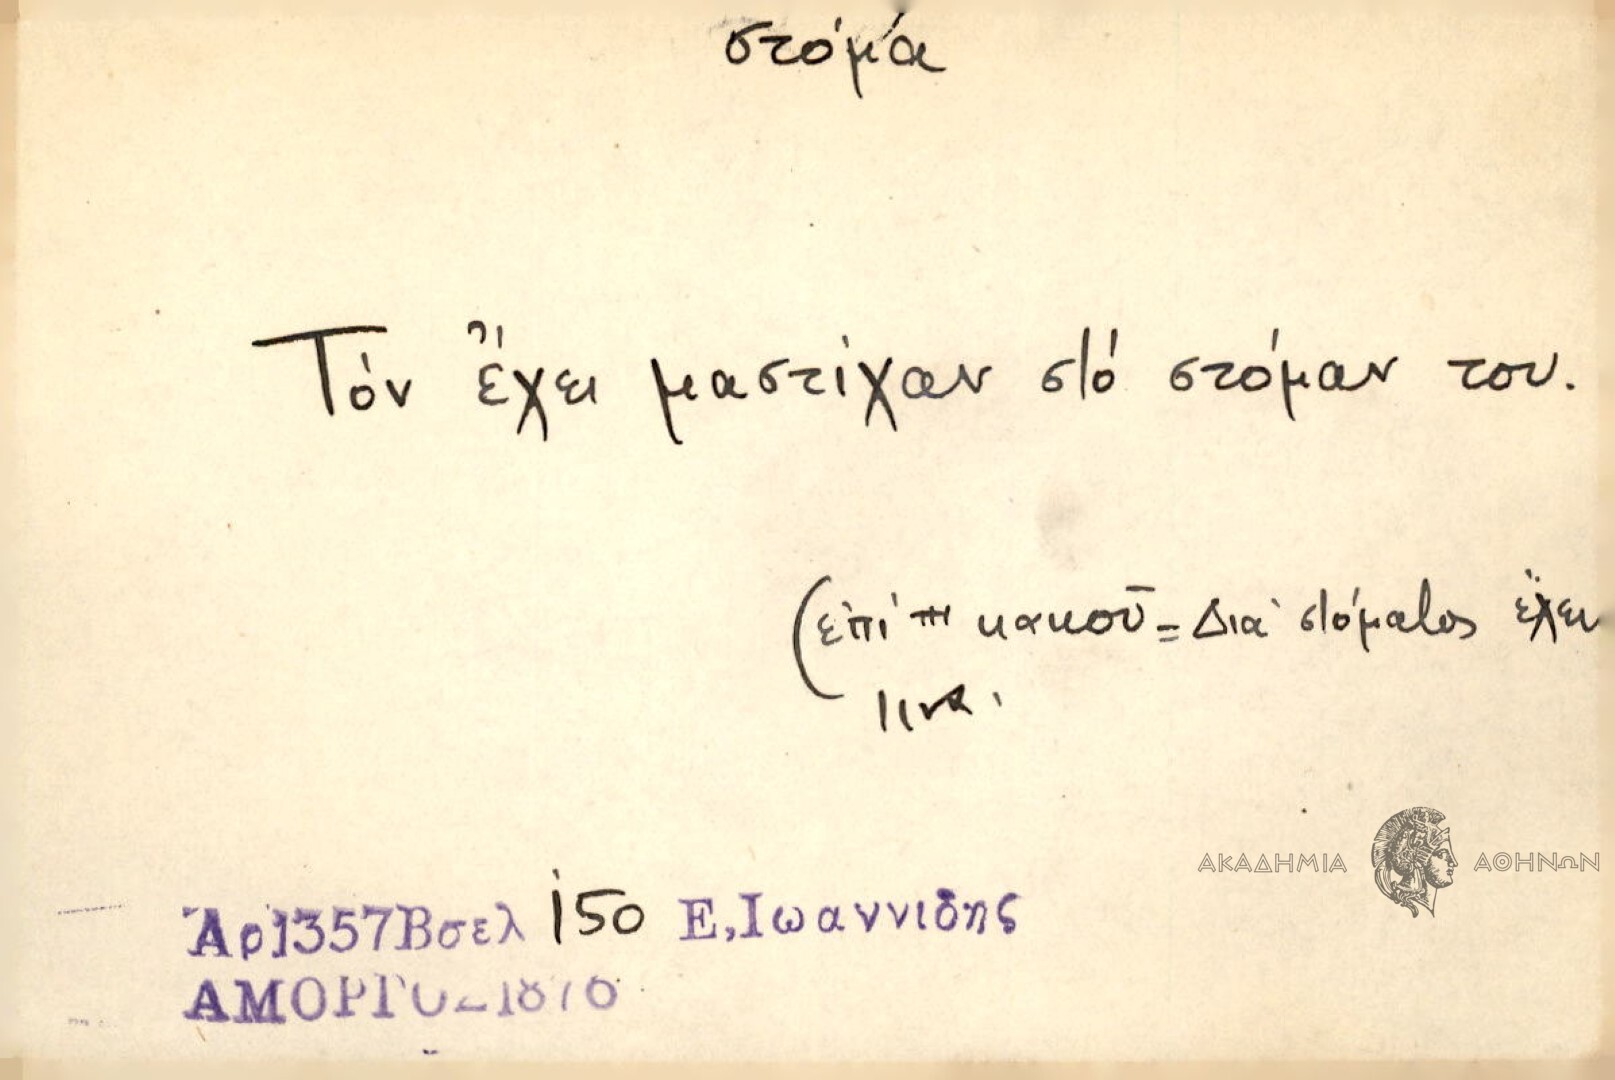 στόμα
Τόν ἔχει μαστίχαν στό στόμαν του.
(ἐπί κακοῦ = Διά στόματος ἔχει
τινα.
ΑΚΑΔΗΜΙΑ ΑΘΗΝΩΝ
Ἀρ1357Βσελ 150 Ε,Ιωαννιδης
ΑΜΟΡΓΟΣ1876